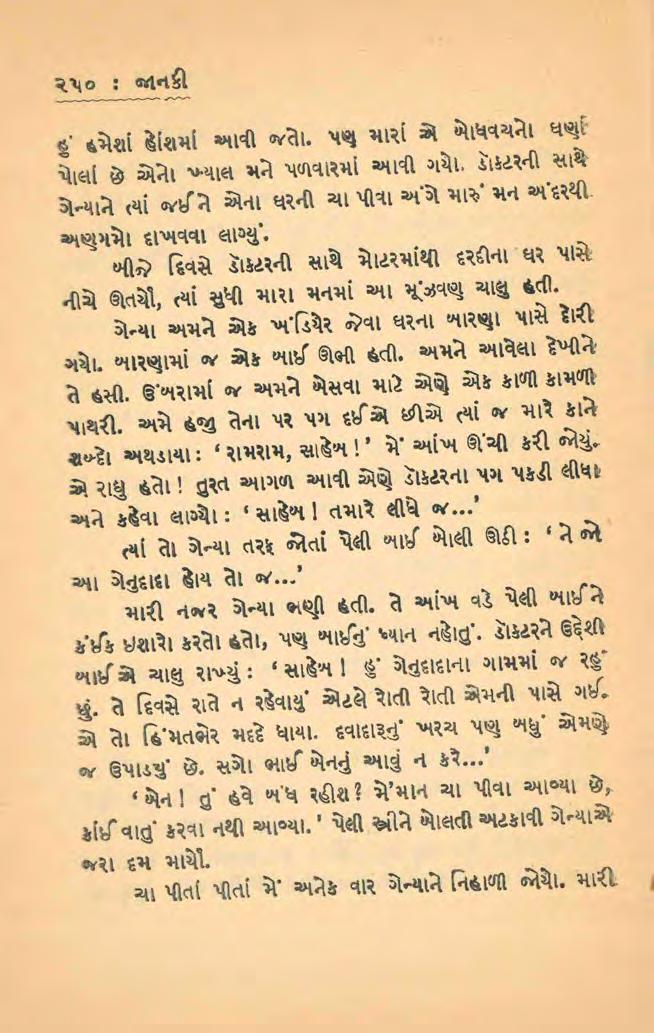 ૨૫૦ : જાનકી
હું હમેશાં હોંશમાં આવી જતો. પણ મારાં એ બોધવચનો ઘણાં
પોલાં છે એનો ખ્યાલ મને પળવારમાં આવી ગયો. ડૉક્ટરની સાથે
ગેન્યાને ત્યાં જઈને એના ઘરની ચા પીવા અંગે મારું મન અંદરથી
અણગમો દાખવવા લાગ્યું.
બીજે દિવસે ડૉકટરની સાથે મોટરમાંથી દરદીના ઘર પાસે
નીચે ઊતર્યો, ત્યાં સુધી મારા મનમાં આ મૂંઝવણ ચાલુ હતી.
ગેન્યા અમને એક ખંડિયેર જેવા ઘરના બારણા પાસે દોરી
ગયો. બારણામાં જ એક બાઈ ઊભી હતી. અમને આવેલા દેખીને
તે હસી. ઉંબરામાં જ અમને બેસવા માટે એણે એક કાળી કામળી
પાથરી. અમે હજી તેના પર પગ દઈએ છીએ ત્યાં જ મારે કાને
શબ્દો અથડાયા: ‘રામરામ, સાહેબ !’ મેં આંખ ઊંચી કરી જોયું.
એ રાધુ હતો ! તુરત આગળ આવી એણે ડૉકટરના પગ પકડી લીધા
અને કહેવા લાગ્યો : ‘સાહેબ ! તમારે લીધે જ...’
ત્યાં તો ગેન્યા તરફ જોતાં પેલી બાઈ બોલી ઊઠી : ‘ને જો
આ ગેનુદાદા હોય તો જ...’
મારી નજર ગેન્યા ભણી હતી. તે આંખ વડે પેલી બાઈને
કંઈક ઇશારો કરતો હતો, પણ બાઈનું ધ્યાન નહોતું. ડૉકટરને ઉદ્દેશી
બાઈએ ચાલુ રાખ્યું : ‘સાહેબ ! હું ગેનુદાદાના ગામમાં જ રહું
છું. તે દિવસે રાતે ન રહેવાયું એટલે રોતી રોતી એમની પાસે ગઈ.
એ તો હિંમતભેર મદદે ધાયા. દવાદારૂનું ખરચ પણ બધું એમણે
જ ઉપાડ્યું છે. સગો ભાઈ બેનનું આવું ન કરે...’
‘બેન ! તું હવે બંધ રહીશ? મે'માન ચા પીવા આવ્યા છે,
કાંઈ વાતું કરવા નથી આવ્યા.’ પેલી સ્ત્રીને બોલતી અટકાવી ગેન્યાએ
જરા દમ માર્યો.
ચા પીતાં પીતાં મેં અનેક વાર ગેન્યાને નિહાળી જોયો. મારી